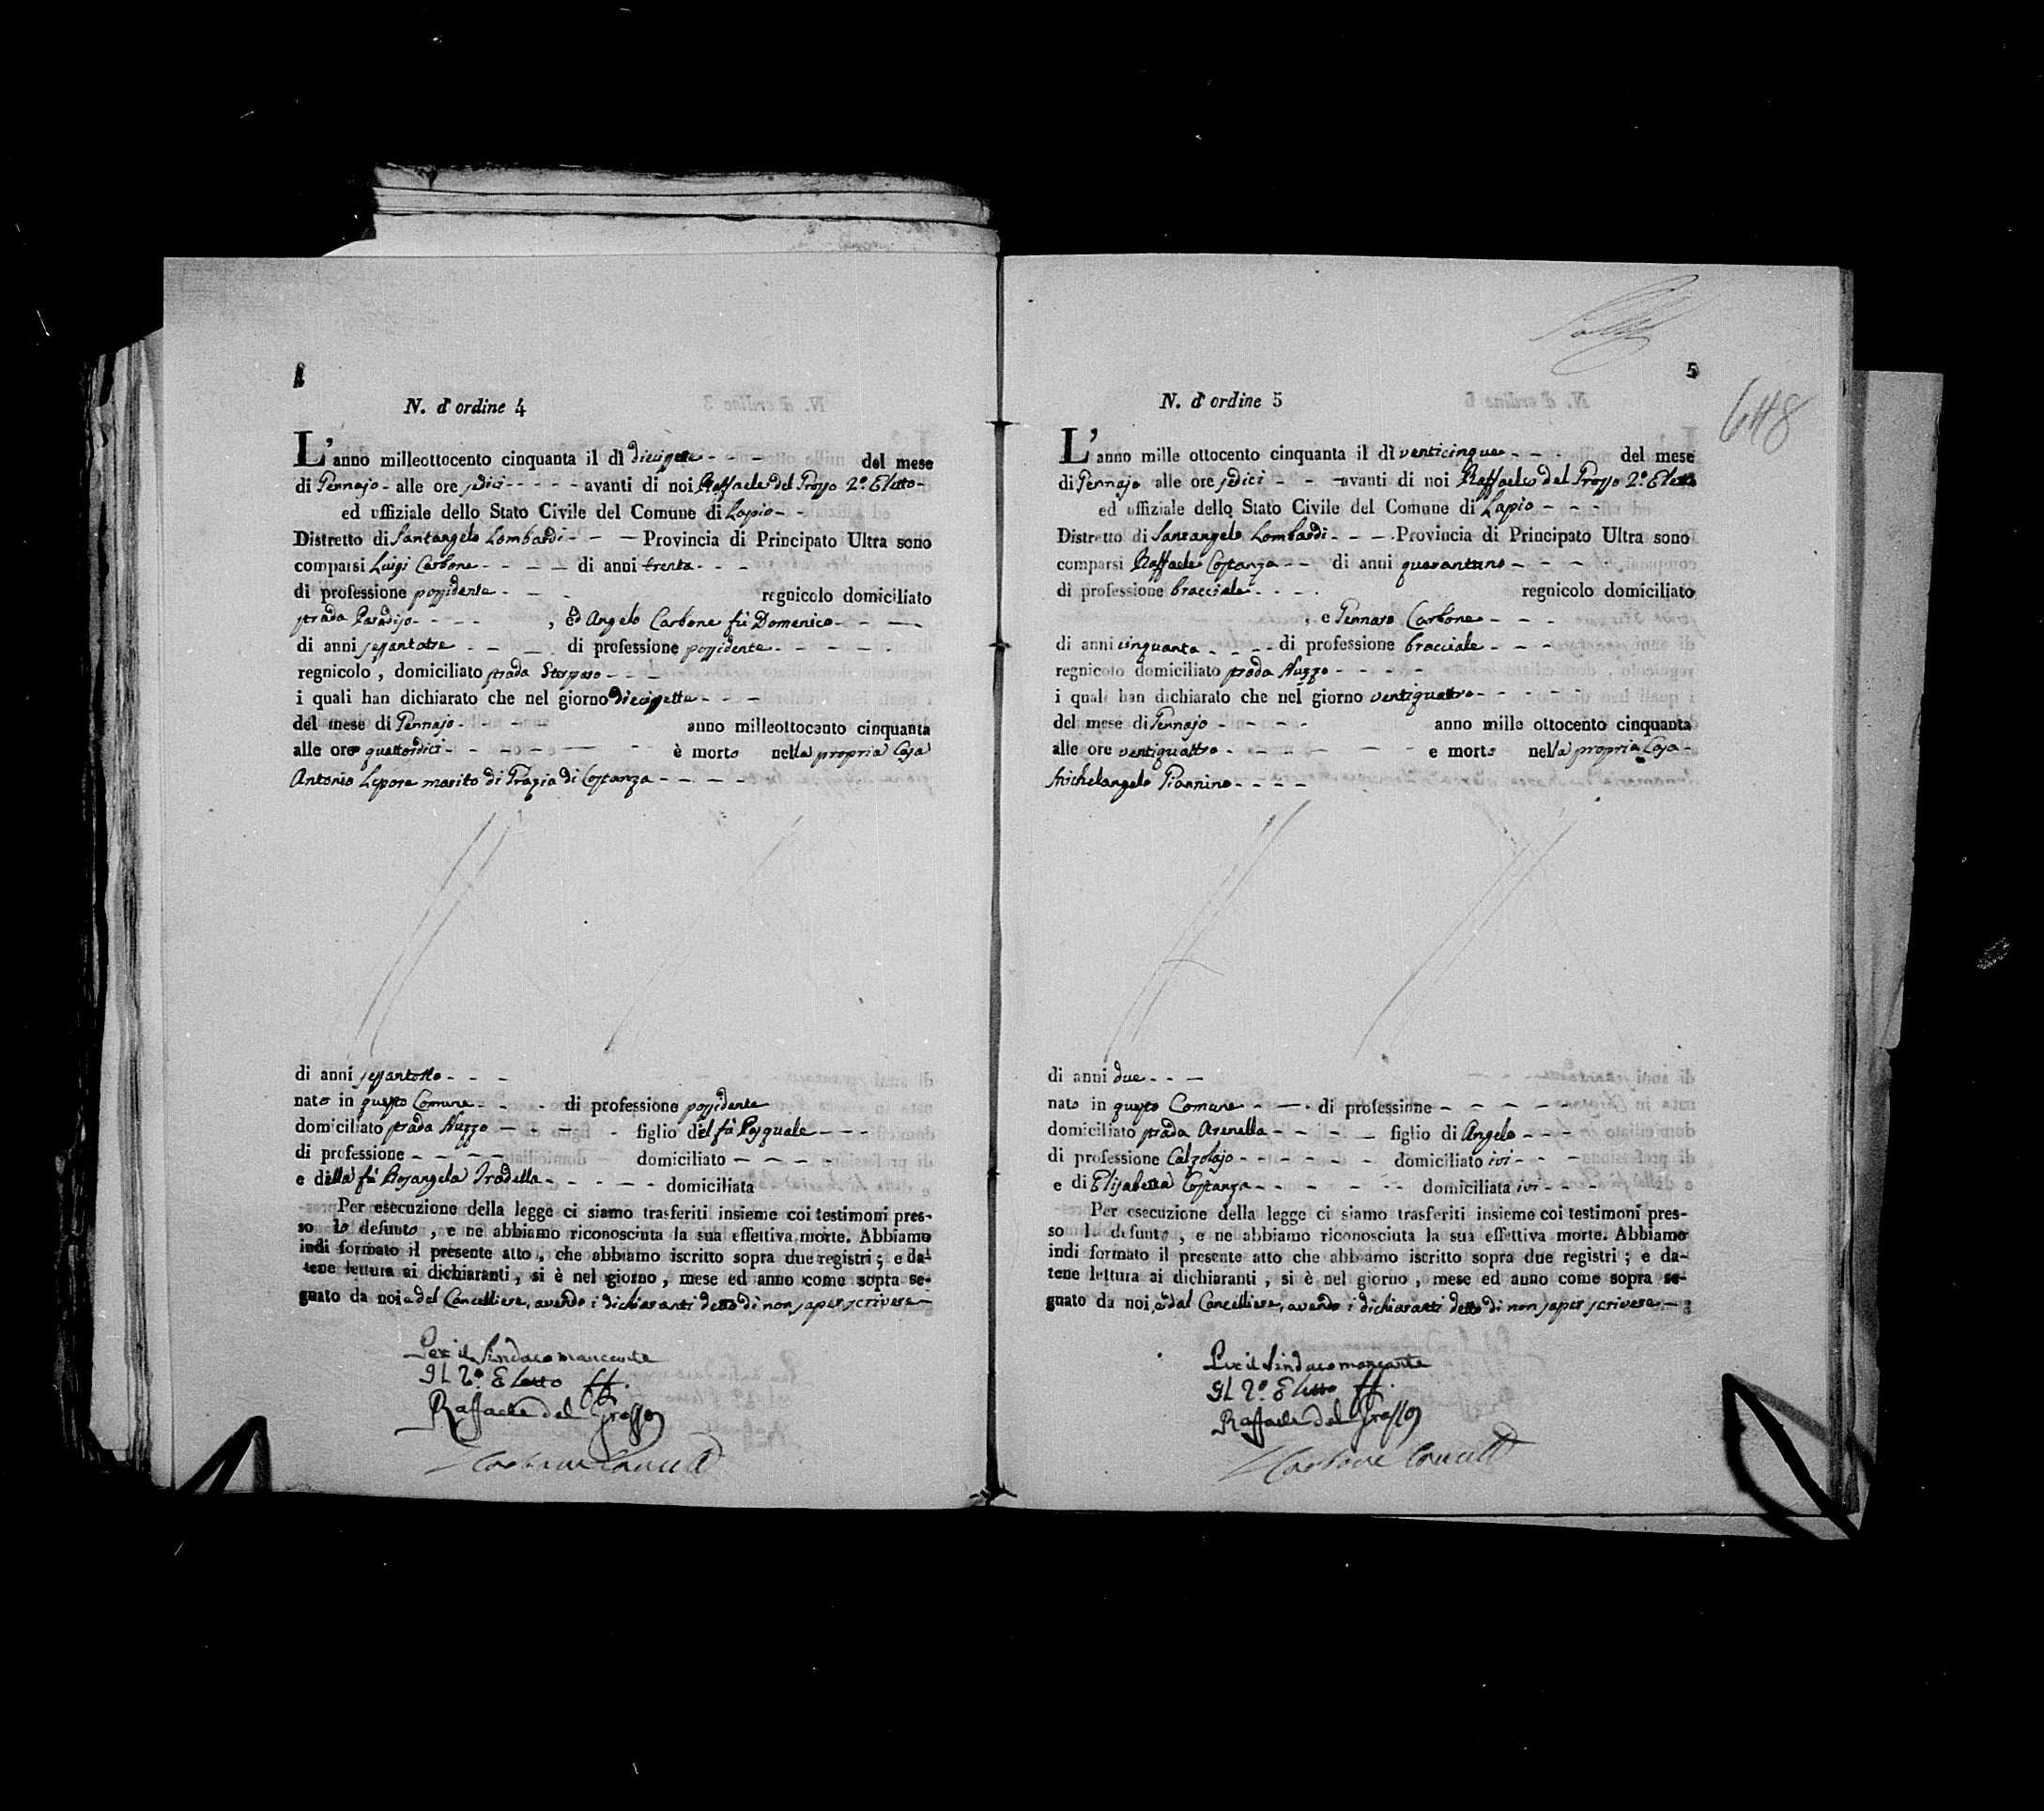 N. d'ordine 4
L'anno milleottocento cinquanta il dì diecisette - - - del mese
di Gennajo - alle ore sedici - - - - - avanti di noi Raffaele del Grosso 2º. Eletto -
ed uffiziale dello Stato Civile del Comune di Lapio - -
Distretto di Santangelo Lombardi - - - Provincia di Principato Ultra sono
comparsi Luigi Carbone - - - - - di anni trenta - - -
di professione possidente - - - regnicolo domiciliato
strada Paradiso - - - - , ed Angelo Carbone fù Domenico - - -
di anni sessantatre - - - di professione possidente - - - - - -
regnicolo , domiciliato strada Sterparo - - -
i quali han dichiarato che nel giorno diecisette - - -
del mese di Gennajo - - - - anno milleottocento cinquanta
alle ore quattordici - - - - - - è morto nella propria Casa
Antonio Lepore marito di Grazia di Costanza - - - -
di anni sessantotto - - -
nato in questo Comune - - - di professione possidente
domiciliato strada Nuzzo - - - - figlio del fù Pasquale - - -
di professione - - - - domiciliato - - - -
e della fù Rosangela Iradella - - - - - domiciliata
Per esecuzione della legge ci siamo trasferiti insieme coi testimoni pres-
so lo defunto , e ne abbiamo riconosciuta la sua effettiva morte. Abbiamo
indi formato il presente atto , che abbiamo iscritto sopra due registri ; e da-
tene lettura ai dichiaranti , si è nel giorno , mese ed anno come sopra se-
gnato da noi e dal Cancelliere, avendo i dichiaranti detto di non saper scrivere -
Per il Sindaco mancante
Il 2º. Eletto
Raffaele del Grosso
Carbone Cancell
5
648
N. d'ordine 5
L'anno mille ottocento cinquanta il dì venticinque - - - del mese
di Gennajo alle ore sedici - - - avanti di noi Raffaele del Grosso 2º. Eletto
ed uffiziale dello Stato Civile del Comune di Lapio - - -
Distretto di Santangelo Lombardi - - - Provincia di Principato Ultra sono
comparsi Raffaele Costanza - - di anni quarantuno - - - -
di professione bracciale - - - - regnicolo domiciliato
, e Gennaro Carbone - - -
di anni cinquanta - - - - di professione bracciale - - -
regnicolo domiciliato strada Nuzzo - - - -
i quali han dichiarato che nel giorno ventiquattro - - - - -
del mese di Gennajo - - - - anno mille ottocento cinquanta
alle ore ventiquattro - - - - - - e morto nella propria Casa -
Michelangelo Giannino - - - -
di anni due - - -
nato in questo Comune - - - di professione - - - - -
domiciliato strada Arenella - - - - - figlio di Angelo - - -
di professione Calzolajo - - - - - - domiciliato ivi - - -
e di Elisabetta Costanza - - - - - - domiciliata ivi - - -
Per esecuzione della legge ci siamo trasferiti insieme coi testimoni pres-
so lo defunto , e ne abbiamo riconosciuta la sua effettiva morte. Abbiamo
indi formato il presente atto che abbiamo iscritto sopra due registri ; e da-
tene lettura ai dichiaranti , si è nel giorno , mese ed anno come sopra se-
gnato da noi, e dal Cancelliere, avendo i dichiaranti detto di non saper scrivere -
Per il Sindaco mancante
Il 2º. Eletto
Raffaele del Grosso
Carbone Cancell